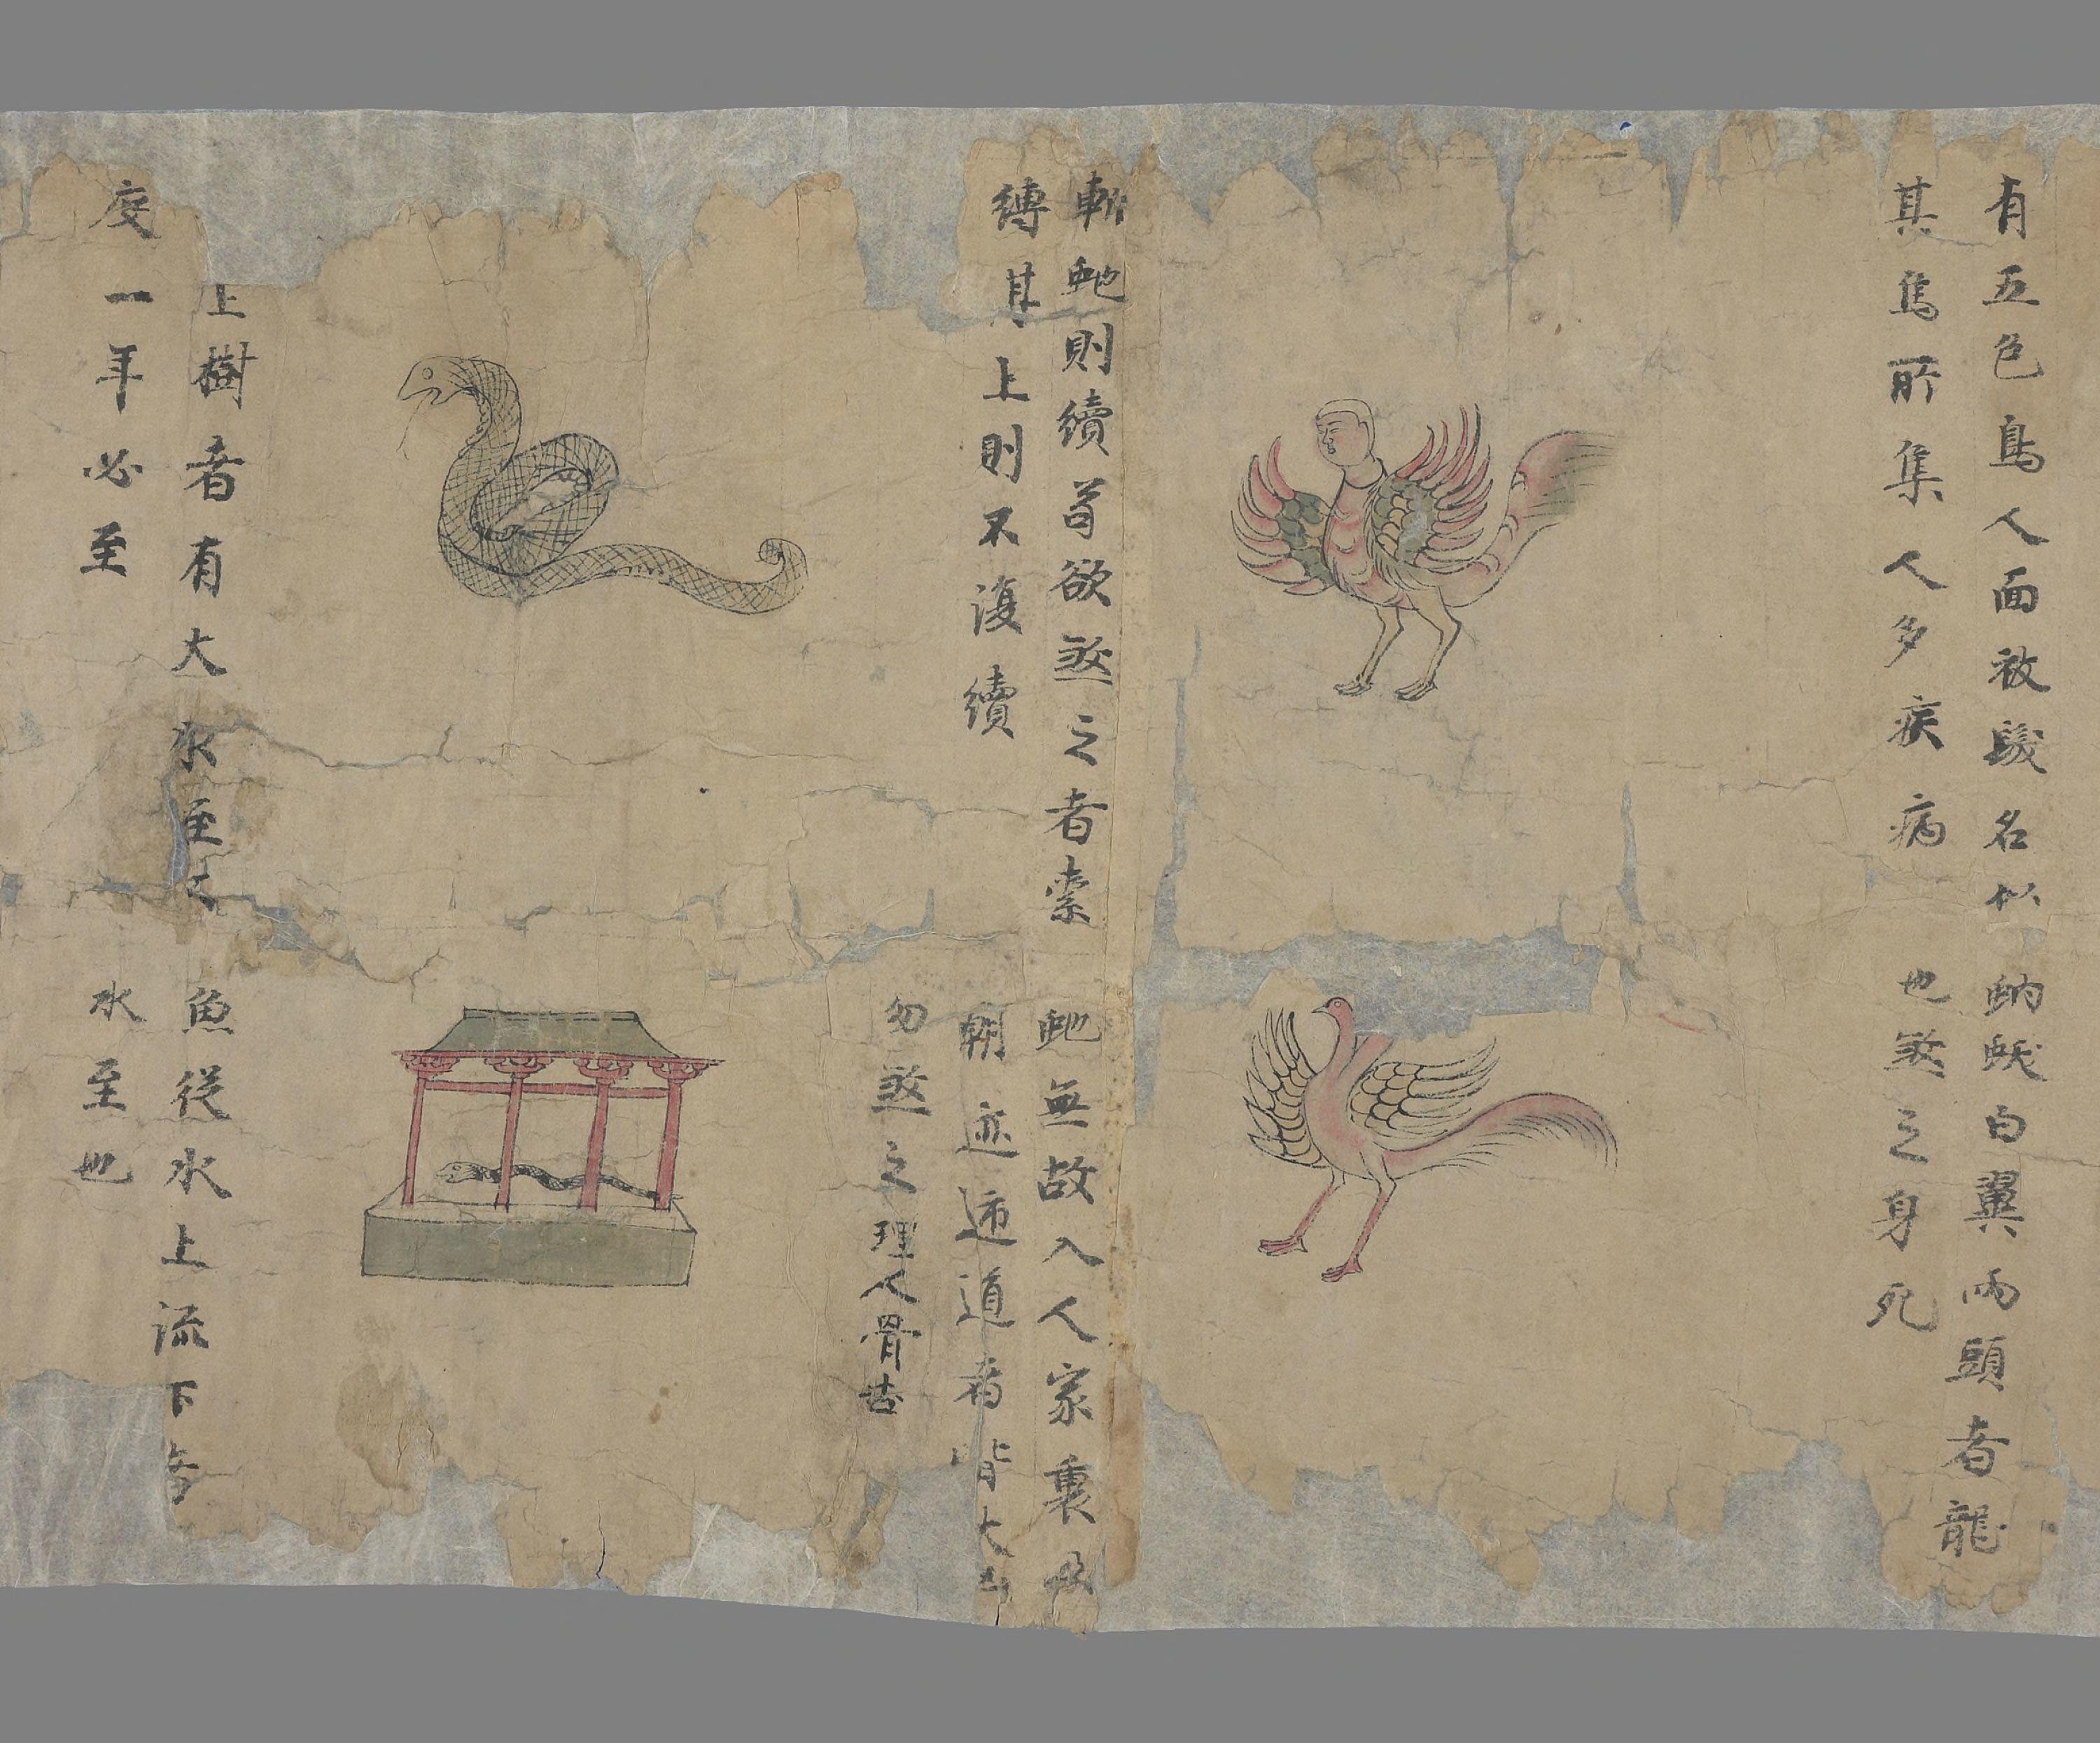 有五色鳥人面被髮名似
其鳥所集人多疾病
蚋蛾白翼兩頭者龍
也煞之身死
斬虵則續苟欲煞之者索
縛其上則不復續
虵無故入人家裏及
朝迹迊道者皆大
勿煞之理人骨吉
上樹者有大水至
度一年必至
魚從水上流下者
水至也